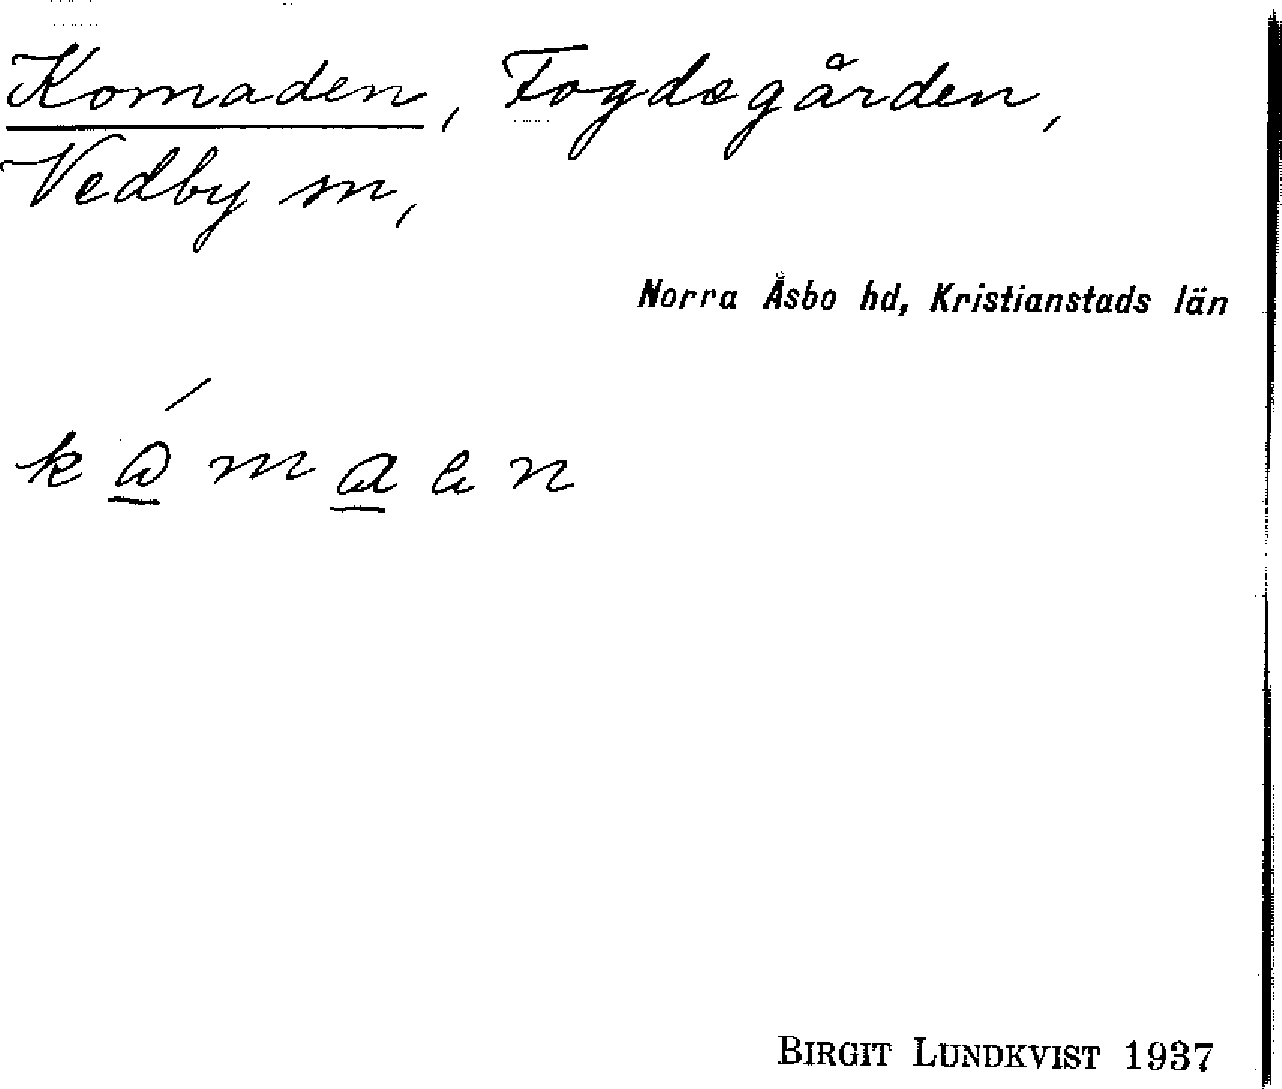 Komaden, Fogdegården,
Vedby sn,
Norra Åsbo hd, Kristianstads län
BIRGIT LUNDKVIST 1937